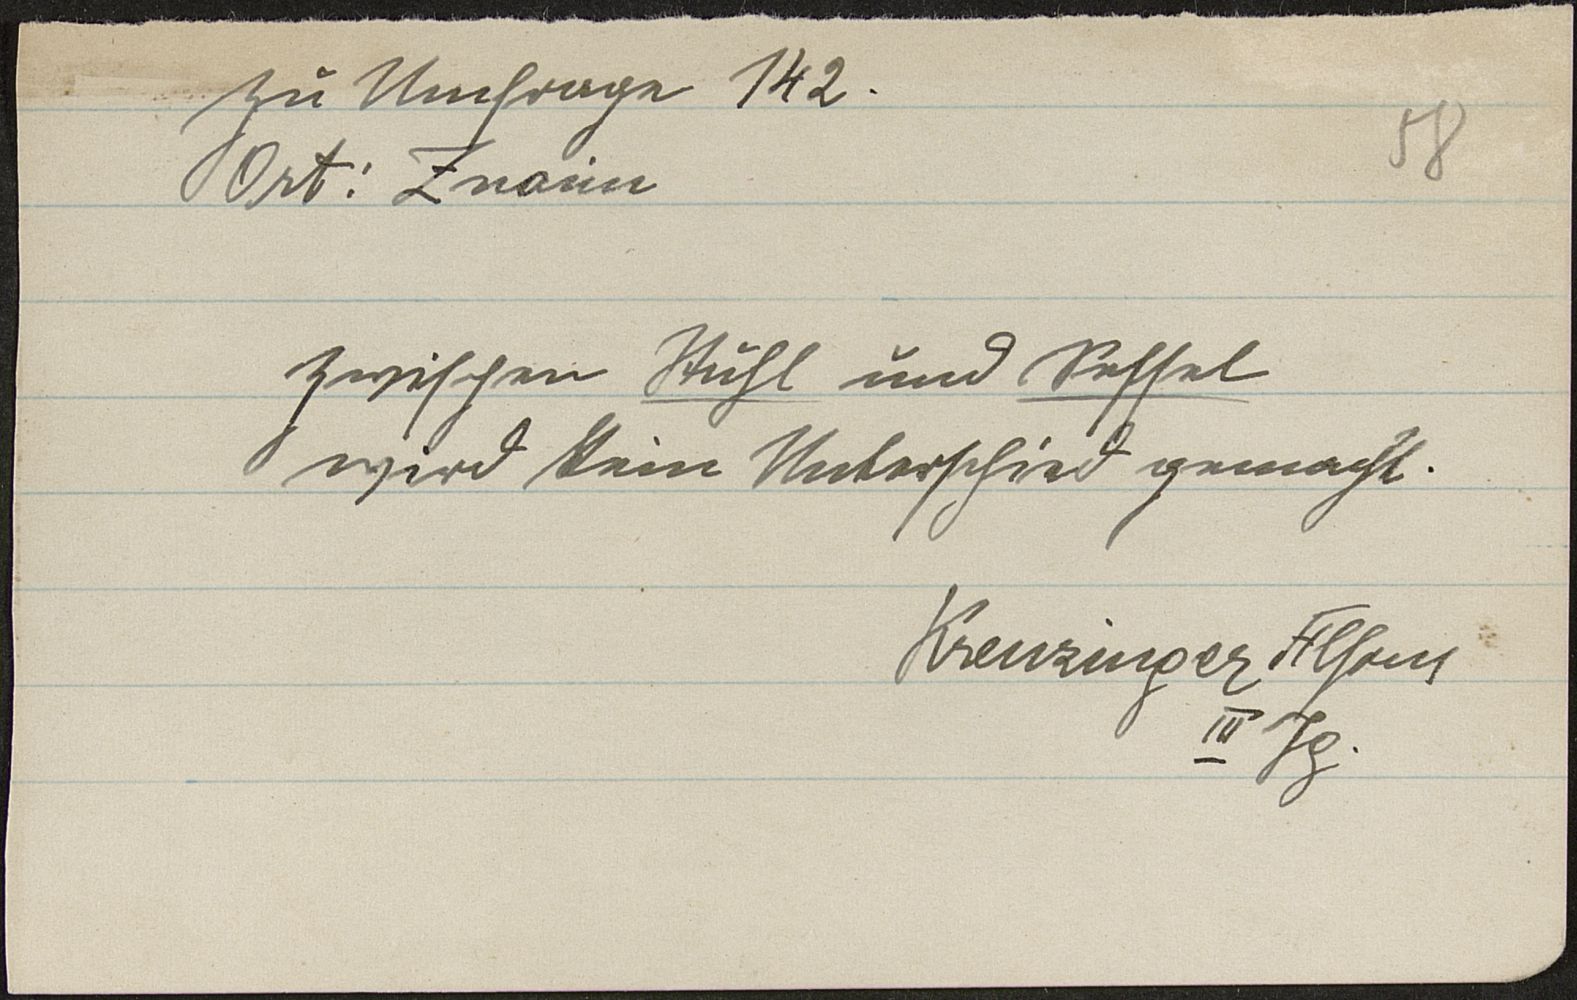 zu Umfrage 142.
58
Ort: Znaim
zwischen Stuhl und Sessel
wird kein Unterschied gemacht.
Krenzinger Alfons
III Jg.